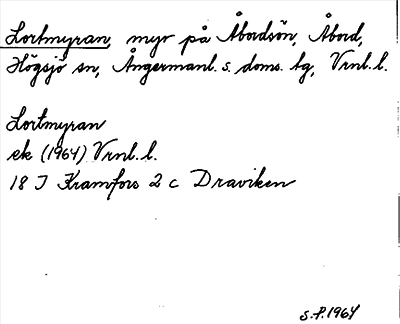 Lortmyran, myr på Åbordsön, Åbord,
Högsjö sn, Ångermanl. s. doms. tg, Vrnl. l.
Lortmyran
ek (1964) Vrnl. l.
18 I Kramfors 2 c Draviken
S.P. 1964